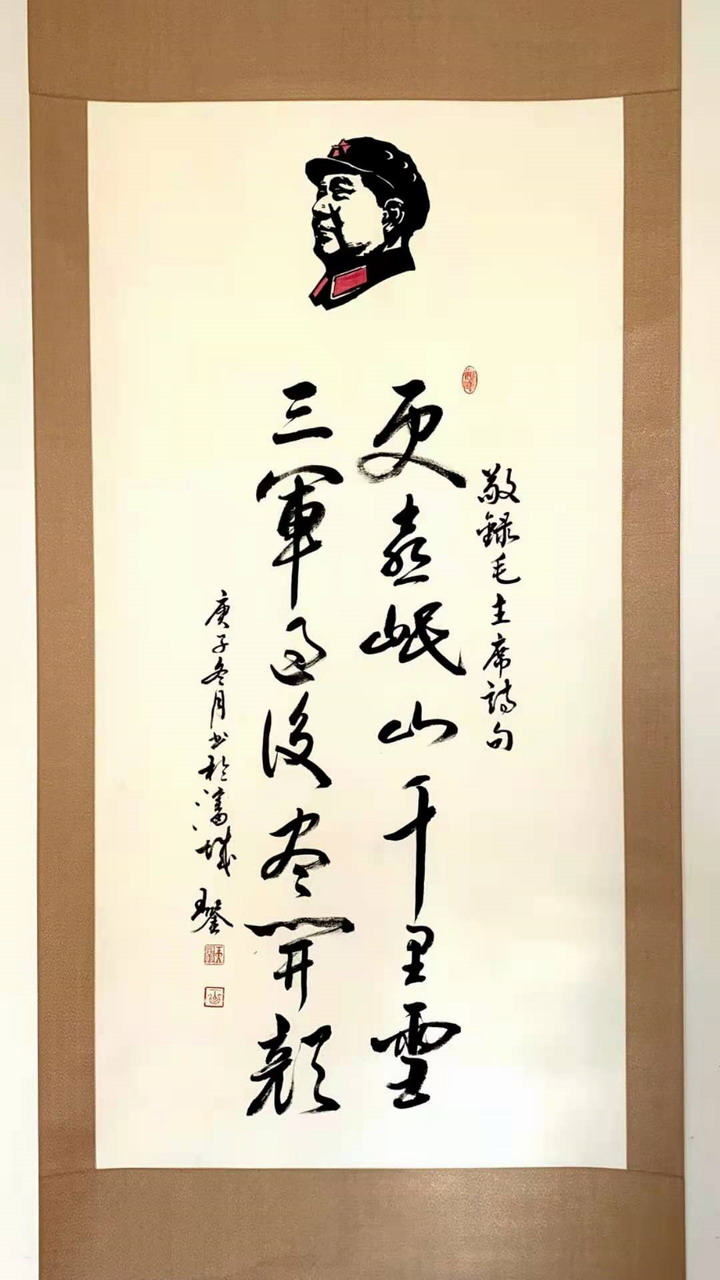 敬錄毛主席詩句
更喜岷山千里雪
三軍过後尽開顏
庚子冬月书於城